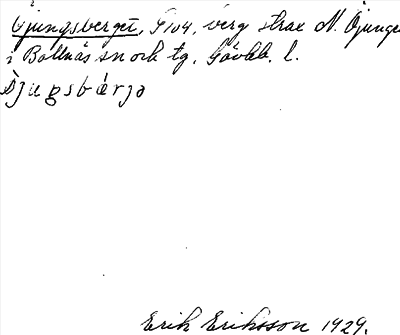 Öjungsberget, G104, berg strax N. Öjunge
i Bollnäs sn och tg, Gävleb. l.
Erik Eriksson 1929.